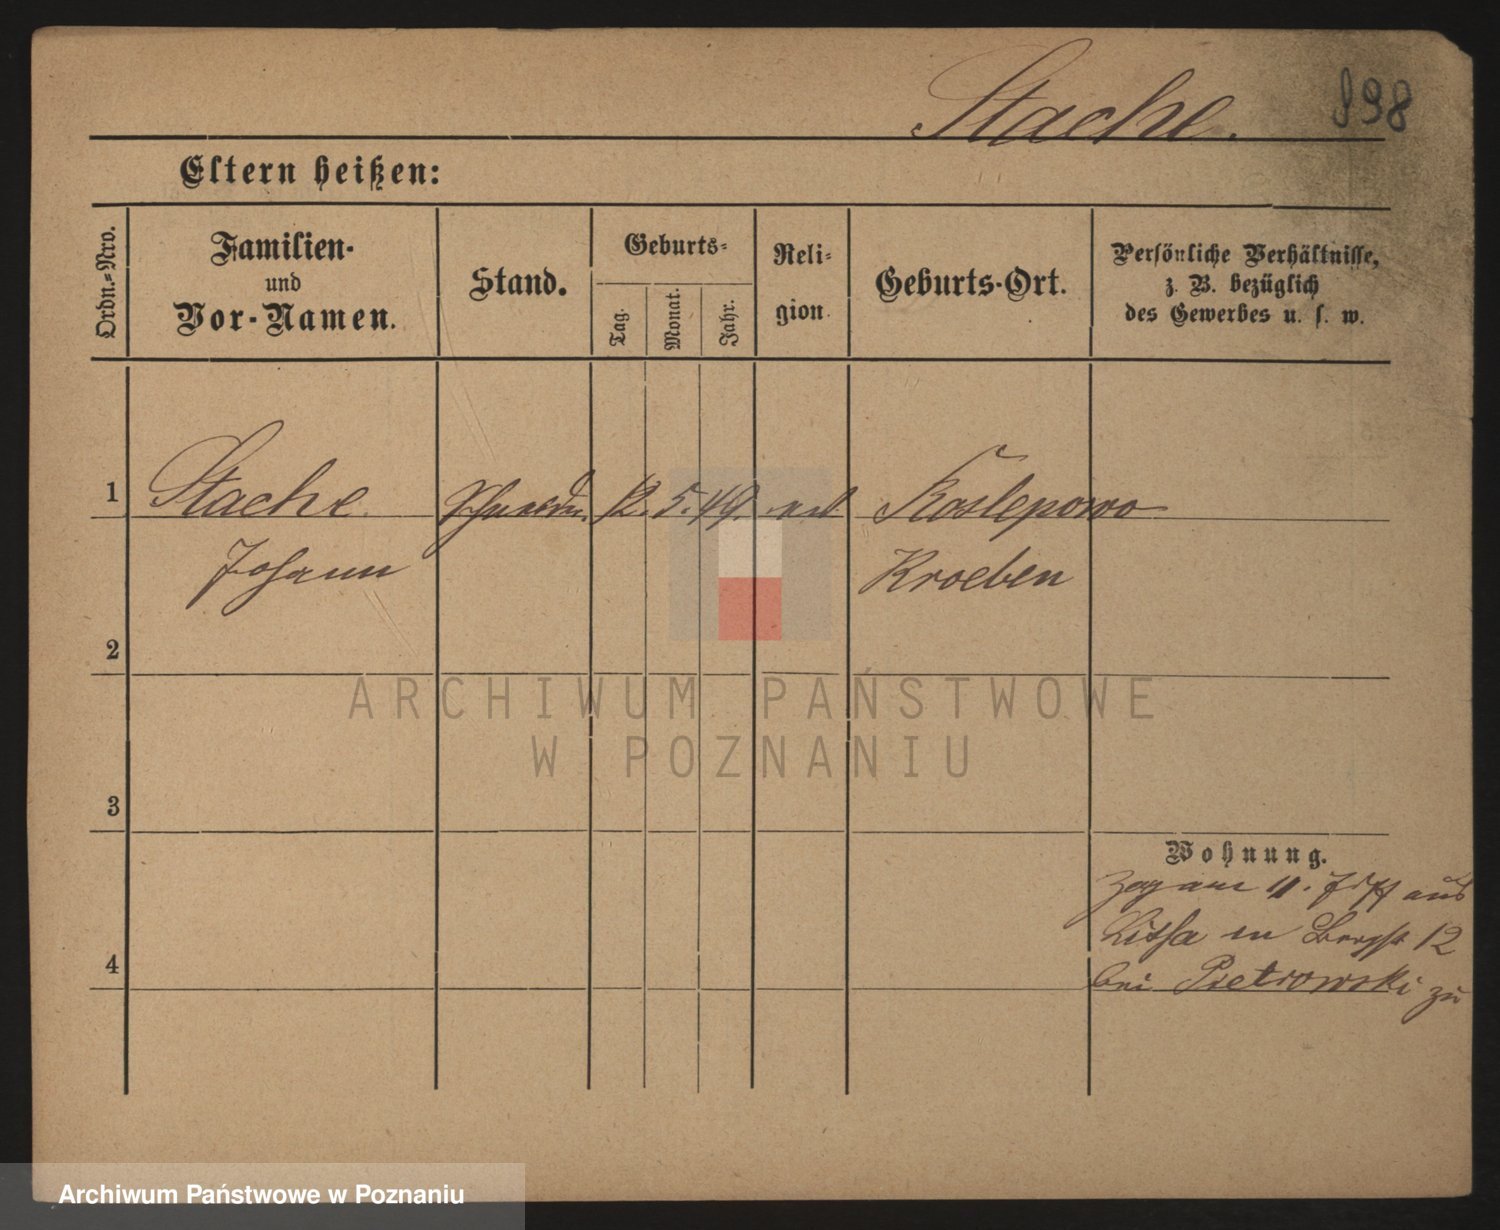 Stache. 998
Eltern heißen:
Ordn.-Nro.
Familien-
und
Vor-Namen.
Stand.
Geburts-
Tag.
Monat.
Jahr.
Reli-
gion
Geburts-Ort.
Persönliche Verhältnisse,
z. B. bezüglich
des Gewerbes u. s. w.
1 Stache 12. 5. 49. Koslepowo
Johann Kroeben
2
ARCHIWUM PAŃSTWOWE
W POZNANIU
3
Wohnung.
Zog am 11. aus
in Bergst 12
4
bei Pietrowski zu
Archiwum Państwowe w Poznaniu